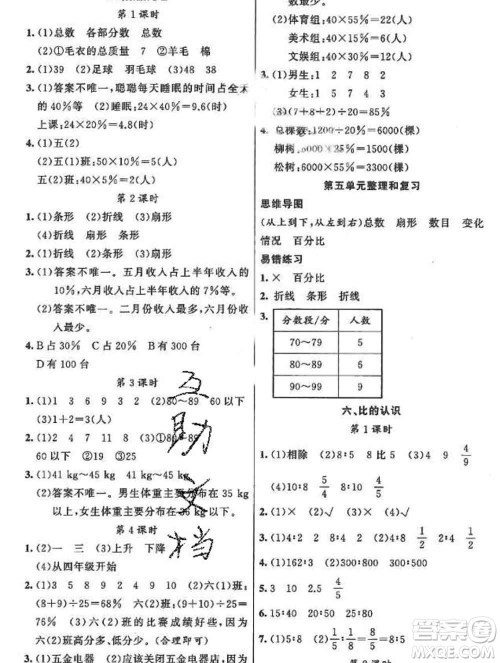 第1课时
1. (1)总数 各部分数 总数
(2)①毛衣的总质量 7 ②羊毛 棉
2. (1)39 (2)足球 羽毛球 (3)48 38
3. (1)答案不唯一。聪聪每天睡眠的时间占
的40%等 (2)睡眠:24×40%=9.6(时)
上课:24×20%=4.8(时)
4. (1)五(2)
(2)五(1)班:50×10%=5(人)
五(2)班:40×5%=2(人)
第2课时
1. (1)条形 (2)折线 (3)扇形
2. 折线 扇形 条形
3. (1)答案不唯一。五月收入占上半年收入的
10%,六月收入占上半年收入的7%等。
(2)答案不唯一。二月份收入最多,六月份
收入最少。
4. B占30% C占20% B有300台
D有100台
第3课时
1. (1)1 3 6 9 3 2 (2)80~89 60以下
(3)1+2=3(人)
2. (1)2 4 7 11 9 2 (3)①80~89
60以下 ②19 ③25
3. (1)41 kg~45 kg 41 kg~45 kg
(2)答案不唯一。男生体重主要分布在35 kg
以上,女生体重主要分布在45 kg以下。
第4课时
1. (2)一 三 (3)上升 下降
(4)从四年级开始
2. (1)3 5 8 9 (2)六(1)班:
(8+9)÷25=68% 六(2)班:
(9+9)÷25=72% 六(2)班
(3)答案不唯一。六(2)班的比赛成绩好些,因
为高分多,低分少。(合理即可)
3. (1)五金电器 (2)应该关闭五金电器店,因
(2)体育组:40×55%=22(人)
美术组:40×15%=6(人)
文娱组:40×30%=12(人)
3. (1)男生:1 2 8 7 2
女生:1 5 7 4 3
(3)(7+8+2)÷20=85%
4. 总棵数:1200÷20%=6000(棵)
柳树:6000×25%=1500(棵)
松树:6000×55%=3300(棵)
第五单元整理和复习
思维导图
(从上到下,从左到右)总数 扇形 数目 变化
情况 百分比
易错练习
1. × 百分比
2. 折线 条形 折线 扇形
3.
分数段/分 人数
70~79 5
80~89 6
90~99 9
六、比的认识
第1课时
1. (1)相除 (2)2∶5 (3)4 9 4/9
(4)10∶8 5/4
2. (1)× (2)√ (3)√
3. (1)5∶8 (2)16∶9 (3)4∶8 1/2 2∶4 1/2
4. (1)2∶1 (2)16∶300 (3)300∶800
5. 3 10 2.5 4/5
6. 15∶40 15∶20 20∶40
7. (1)5∶8 (2)8∶5 (3)5∶13
互助文档
作业精灵